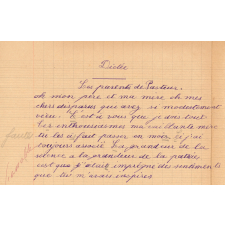 Dictée
Les parents de Pasteur.
oh mon père et ma mère oh mes
chers disparus que avez si modestement
vécu. C'est à vous que je dois tout
tes enthousiasmes ma vaillante mère
tu les a fait passer en moi si j'ai
toujours associé la grandeur de la
science à la grandeur de la patrie
c'est que j'étais imprégné des sentiments
que tu m'avais inspirés